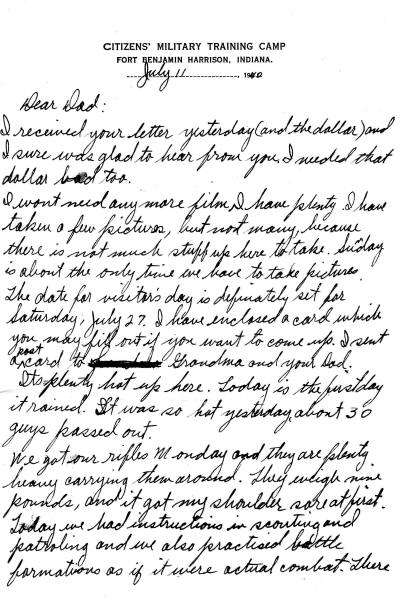 CITIZENS' MILITARY TRAINING CAMP
FORT BENJAMIN HARRISON, INDIANA.
July 11, 1940
Dear Dad:
I received your letter yesterday (and the dollar) and
I sure was glad to hear from you, I needed that
dollar bad too.
I wont need any more film, I have plenty. I have
taken a few pictures, but not many, because
there is not much stuff up here to take. Sunday
is about the only time we have to take pictures.
The date for visitor's day is definately set for
Saturday, July 27. I have enclosed a card which
you may fill out if you want to come up. I sent
a post card to Grandma and your Dad.
Its plenty hot up here. Today is the first day
it rained. It was so hot yesterday, about 30
guys passed out.
We got our rifles Monday and they are plenty
heavy carrying them around. They weigh nine
pounds, and it got my shoulder sore at first.
Today we had instructions in scouting and
patroling and we also practised battle
formations as if it were actual combat. There